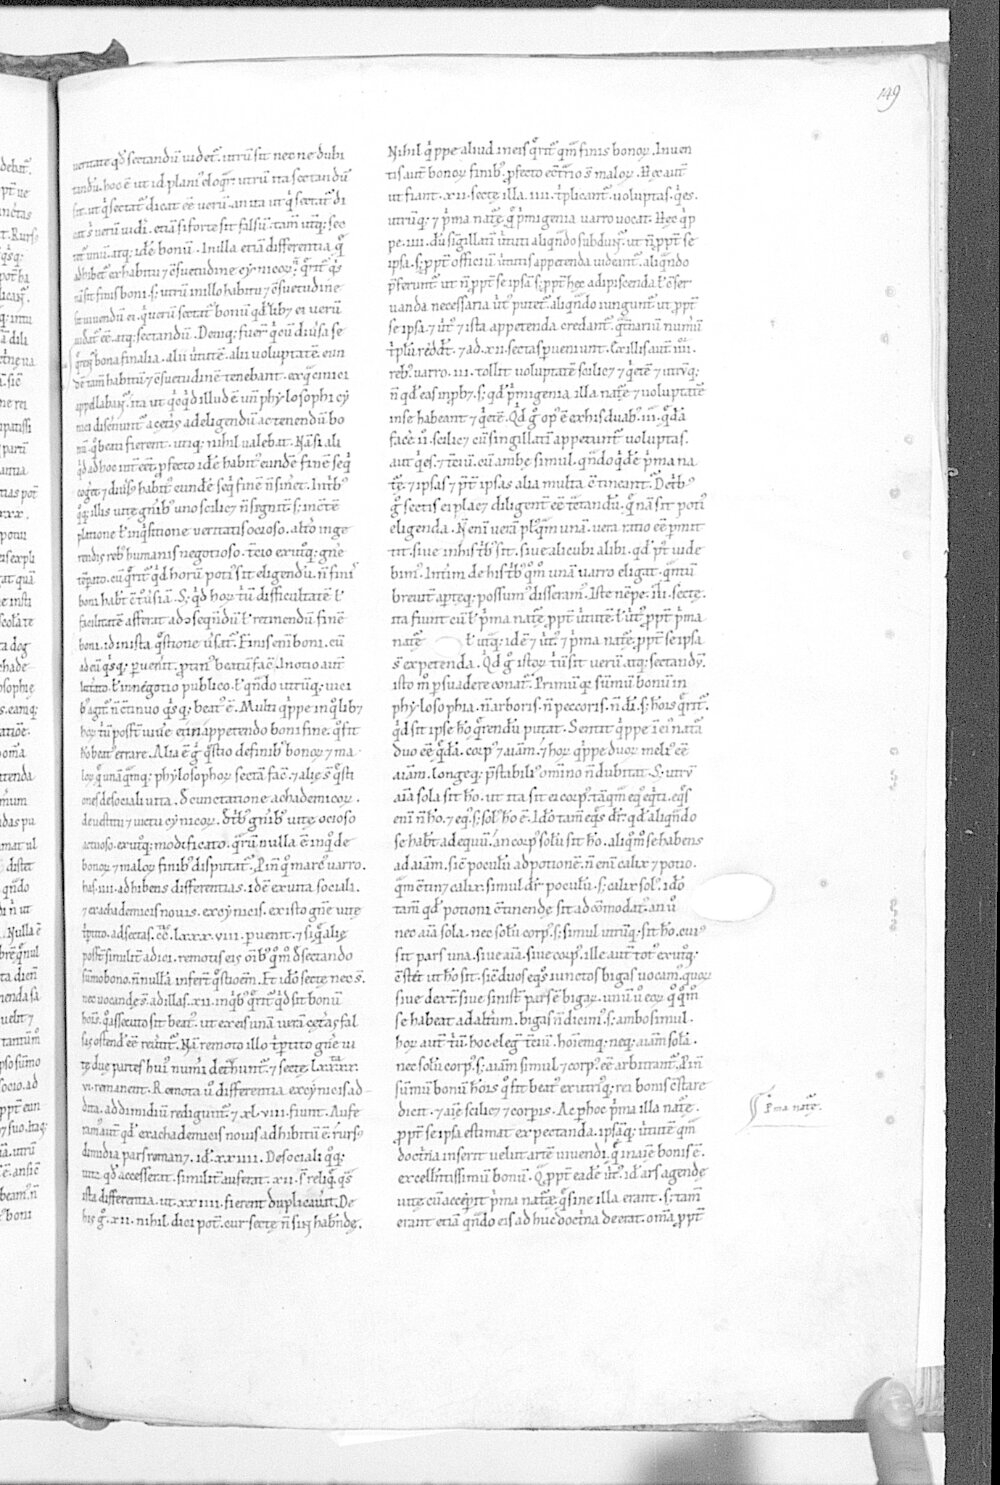 149
ueritate qđ sectandū uidet̃. utrū sit nec ne dubi
tandū. hoc ē ut id plani᾽ eloqr̃. utrū ita sectandū
sit. ut q̇ sectat̃ dicat eē uerū. an ita ut q̇ sectat̃ di
cat s̄ uerū uidi. etiā si forte sit falsū. tam̄ utq̨; sec
tet̃ unū. atq; idē bonū. In illa etiā differentia q̄
adhibet̃ ex habitu 7 c̄suetudine cynicoꝝ. q̄rit̃ q̇s
nā sit finis boni. s; utrū in illo habitu 7 c̄suetudine
sit uiuendū ei q̇ uerū sectat̃ bonū qđ lib7 ei uerū
uidat̃ eē. atq; sectandū. Deniq; fuer̄ q̇ cū diu̇sa se
q̄rent̃ bona finalia. alii u̇tutē. alii uoluptatē. eun
dē tam̄ habitū 7 c̄suetudinē tenebant. ex q̄ cinici
appellaban̄t̃. ita ut q̇cq̇d illud ē un̄ phylosophi cy
nici discernunt̃ a ceteris ad eligendū ac tenendū bo
nū. q̄ beati fierent. utiq; nihil ualebat. Nā si ali
q̇d ad hoc int̄eēt. p̱fecto idē habit᾽ eundē finē seq̇
coger̃ 7 diu̇s᾽ habit᾽ eundē seq̇ finē n̄ siner̃. In trib᾽
q̨; illis uitę gn̄ib᾽ uno scilic7 n̄ segnit̃. s; in c̄tē
platione ł inq̇sitione ueritatis ocioso. alto inge
rendis reb᾽ humanis negotioso. tcio ex utroq; gn̄e
tēpato. cū q̄rit̃ q̇d horū poti᾽ sit eligendū. n̄ finis
boni hab7 c̄t᾽u̇siā. S; q̇d hoꝝ t̄ū difficultatē ł
facilitatē afferat ad c̄seq̄ndū ł retinendū finē
boni. id in ista q̄stione u̇sat̃. Finis eni boni. cū
ad eū q̇sq; p̱uen̄it. p̱tin᾽ beatū facit. In otio aut̄
litato. ł in negotio publico. ł qn̄do utrūq; uici
b᾽ agit̃. n̄ c̄tinuo q̇sq; beat᾽ ē. Multi q̇ppe in q̄lib7
hoꝝ t̄ū poss̄t uiue᾽ et in appetendo boni fine q̄ fit
hō beat᾽ errare. Alia ē ḡ q̄stio de finib᾽ bonoꝝ 7 ma-
loꝝ q̄ unāq̄mq; phylosophoꝝ sectā facit. 7 alię s̄ q̄sti
ones de sociali uita. de cunctatione achademicoꝝ.
de uestitu 7 uictu cynicoꝝ. de trib᾽ gn̄ib᾽ uitę ocioso
actuoso. ex utoq; modificato. q̄rū nulla ē in q̇ de
bonoꝝ 7 maloꝝ finib᾽ disputat̃. P̱in q̄m marc᾽ uarro.
has .iiii. adhibens differentias. idē ex uita sociali.
7 ex achademicis nouis. ex cynicis. ex isto gn̄e uitę
t̄ptito. ad sectas .cc̄.lxxxviii. p̱uenit. 7 siq̄ alię
poss̄t similit̃ adici. remotis eis oīb᾽ q̄m de sectando
sūmo bono. n̄ nullā infer̄t q̄stionē. Et idō sectę nec s̄.
nec uocandę s̄. ad illas .xii. in q̇b᾽ q̄rit̃ q̇d sit bonū
hoīs. q̄ assecuto sit beat᾽. ut ex eis unā uerā cęt̄as fal
sas ostend᾽ eē reu̇tit̃. Nā remoto illo t̄ptito gn̄e ui
tę due partes hui᾽ num̄i det̄hunt̃. 7 sectę .lxxxx.
vi. remanent. Remota u̇ differentia ex cynicis ad-
dita. ad dimidiū rediguntur̃. 7 .xl.viii. fiunt. Aufe
ram᾽ aut̄ qđ ex achademicis nouis adhibitū ē. rursus
dimidia pars reman7. idē .xxiiii. De sociali q̨;
uita qđ accesserat. similit̃ auferat̃. xii. s̄ reliq̄. q̄s
ista differentia. ut .xxiiii. fierent duplicauat̃. De
his ḡ .xii. nihil dici pot̃. cur sectę n̄ sint habendę.
Nihil q̇ppe aliud in eis q̄rit̃ q̄m finis bonoꝝ. Inuen
tis aut̄ bonoꝝ finib᾽. p̱fecto ec̄trio s̄ maloꝝ. Hec aut̄
ut fiant .xii. sectę illa .iiii. t̄plicant̃. uoluptas. q̇es.
utrūq; 7 p̍ma natę. q̄ p̍migenia uarro uocat. Hec q̇p
pe .iiii. dū singillati u̇tuti aliqn̄do subdun̄t̃. ut n̄ ppt̃ se
ipsa. s; ppt̃ officiū u̇tutis appetenda uideant̃. aliqn̄do
p̄ferunt̃. ut n̄ ppt̃ se ipsā. s; ppt̃ hęc adipiscenda ł c̄ser
uanda necessaria u̇t᾽ putet̃. aliqn̄do iungunt̃. ut ppt̃
se ipsa. 7 u̇t᾽ 7 ista appetenda credant̃. q̄t̄nariū numerū
t̄plū reddt̃. 7 ad .xii. sectas p̱ueniunt. Ex illis aut̄ .iiii.
reb᾽ uarro .iii. tollit uoluptatē scilic7 7 q̇etē 7 utrūq;
n̄ qđ eas inp̱b7. s; qđ p̍migenia illa natę 7 uoluptatē
in se habeant 7 q̇etē. Q̇d ḡ op᾽ ē ex his duab᾽. iii. q̄dā
facē. ii. scilic7 cū singillati appetunt̃ uoluptas.
aut q̇es. 7 tciā. cū ambę simul. qn̄do q̇dē p̍ma na
tę. 7 ipsas 7 p̄t̃ ipsas alia multa c̄tineant̃. De trib᾽
ḡ sectis ei plac7 diligent̃ eē t̄ctandū. q̄ nā sit poti᾽
eligenda. N̄ eni uerā pl᾽ q̄m unā. uera ratio eē p̱mit
tit. siue in his trib᾽ sit. siue alicubi alibi. qđ p᾽t uide
bim᾽. Intim de his trib᾽ q̄m᾽ unā uarro eligat. q̄ntū
breuit̃ aperteq; possum᾽ disseram᾽. Iste nēpe .iii. sectę.
ita fiunt cū ł p̍ma natę. ppt̃ u̇tutē. ł u̇t᾽. ppt̃ p̍ma
natę ł utq;. idē 7 u̇t᾽. 7 p̍ma natę. ppt̃ se ipsa
s̄ expetenda. Q̇d ḡ istoꝝ t̄ū sit uerū atq; sectandū.
isto m̊ p̱suadere conat̃. Primū q̄ sūmū bonū in
phylosophia. n̄ arboris. n̄ peccoris. n̄ di. s; hoīs q̄rit̃.
q̇d sit ipse hō. q̄rendū putat. Sentit q̇ppe i ei᾽ natā
duo eē q̄dā. corp᾽ 7 aiām. 7 hoꝝ q̇ppe duoꝝ meli᾽ eē
aiām. longeq; p̄stabili᾽ omīno n̄ dubitat. S; utrū
aīa sola sit hō. ut ita sit ei corp᾽. tāq̄m eq᾽ eq̇ti. eq̄s
eni n̄ hō. 7 eq᾽. s; sol᾽ hō ē. Idō tam̄ eq̄s dr̃. qđ aliqn̄do
se hab7 ad equū. an corp᾽ solū sit hō. aliq̄m᾽ se habens
ad aiām. sic̄ poculū ad potionē. n̄ eni calix 7 potio.
q̄m c̄tin7 calix. simul dr̃ poculū. s; calix sol᾽. idō
tam̄ qđ potioni c̄tinendę sit adc̄modat᾽. an u̇
nec aīa sola. nec solū corp᾽. s; simul utrūq; sit hō. cui᾽
sit pars una. siue aīa. siue corp᾽. ille aut̄ tot᾽ ex utoq;
c̄stet ut hō sit. sic̄ duos eq̄s iunctos bigas uocam᾽. quoꝝ
siue dext̃ siue sinist̃ pars ē bigaꝝ. unū u̇ eoꝝ q̄q̄m᾽
se habeat ad altum. bigas n̄ dicim᾽. s; ambo simul.
hoꝝ aut̄ t̄ū hoc eleg᾽ t̄ciū. hoīemq; neq; aiām solā.
nec solū corp᾽. s; aiām simul 7 corp᾽ eē arbitrant̃. P̱in
sūmū bonū hoīs q̄ fit beat᾽ ex utiq; rei bonis c̄stare
dicit. 7 aīę scilic7 7 corpris. Ac p̱hoc p̍ma illa natę.
ppt̃ se ipsa estimat expectanda. ipsāq; u̇tutē q̄m
doct̄na inserit uelut artē uiuendi. q̄ in aiē bonis ē.
excellentissimū bonū. Q̄ppt̃ eadē u̇t᾽. id᾽ ars agendę
uitę cū acceperit p̍ma natę. q̄ sine illa erant. s; tam̄
erant etiā qn̄do eis adhuc doct̄na deerat. oma ppt̃
P̍ma natę.